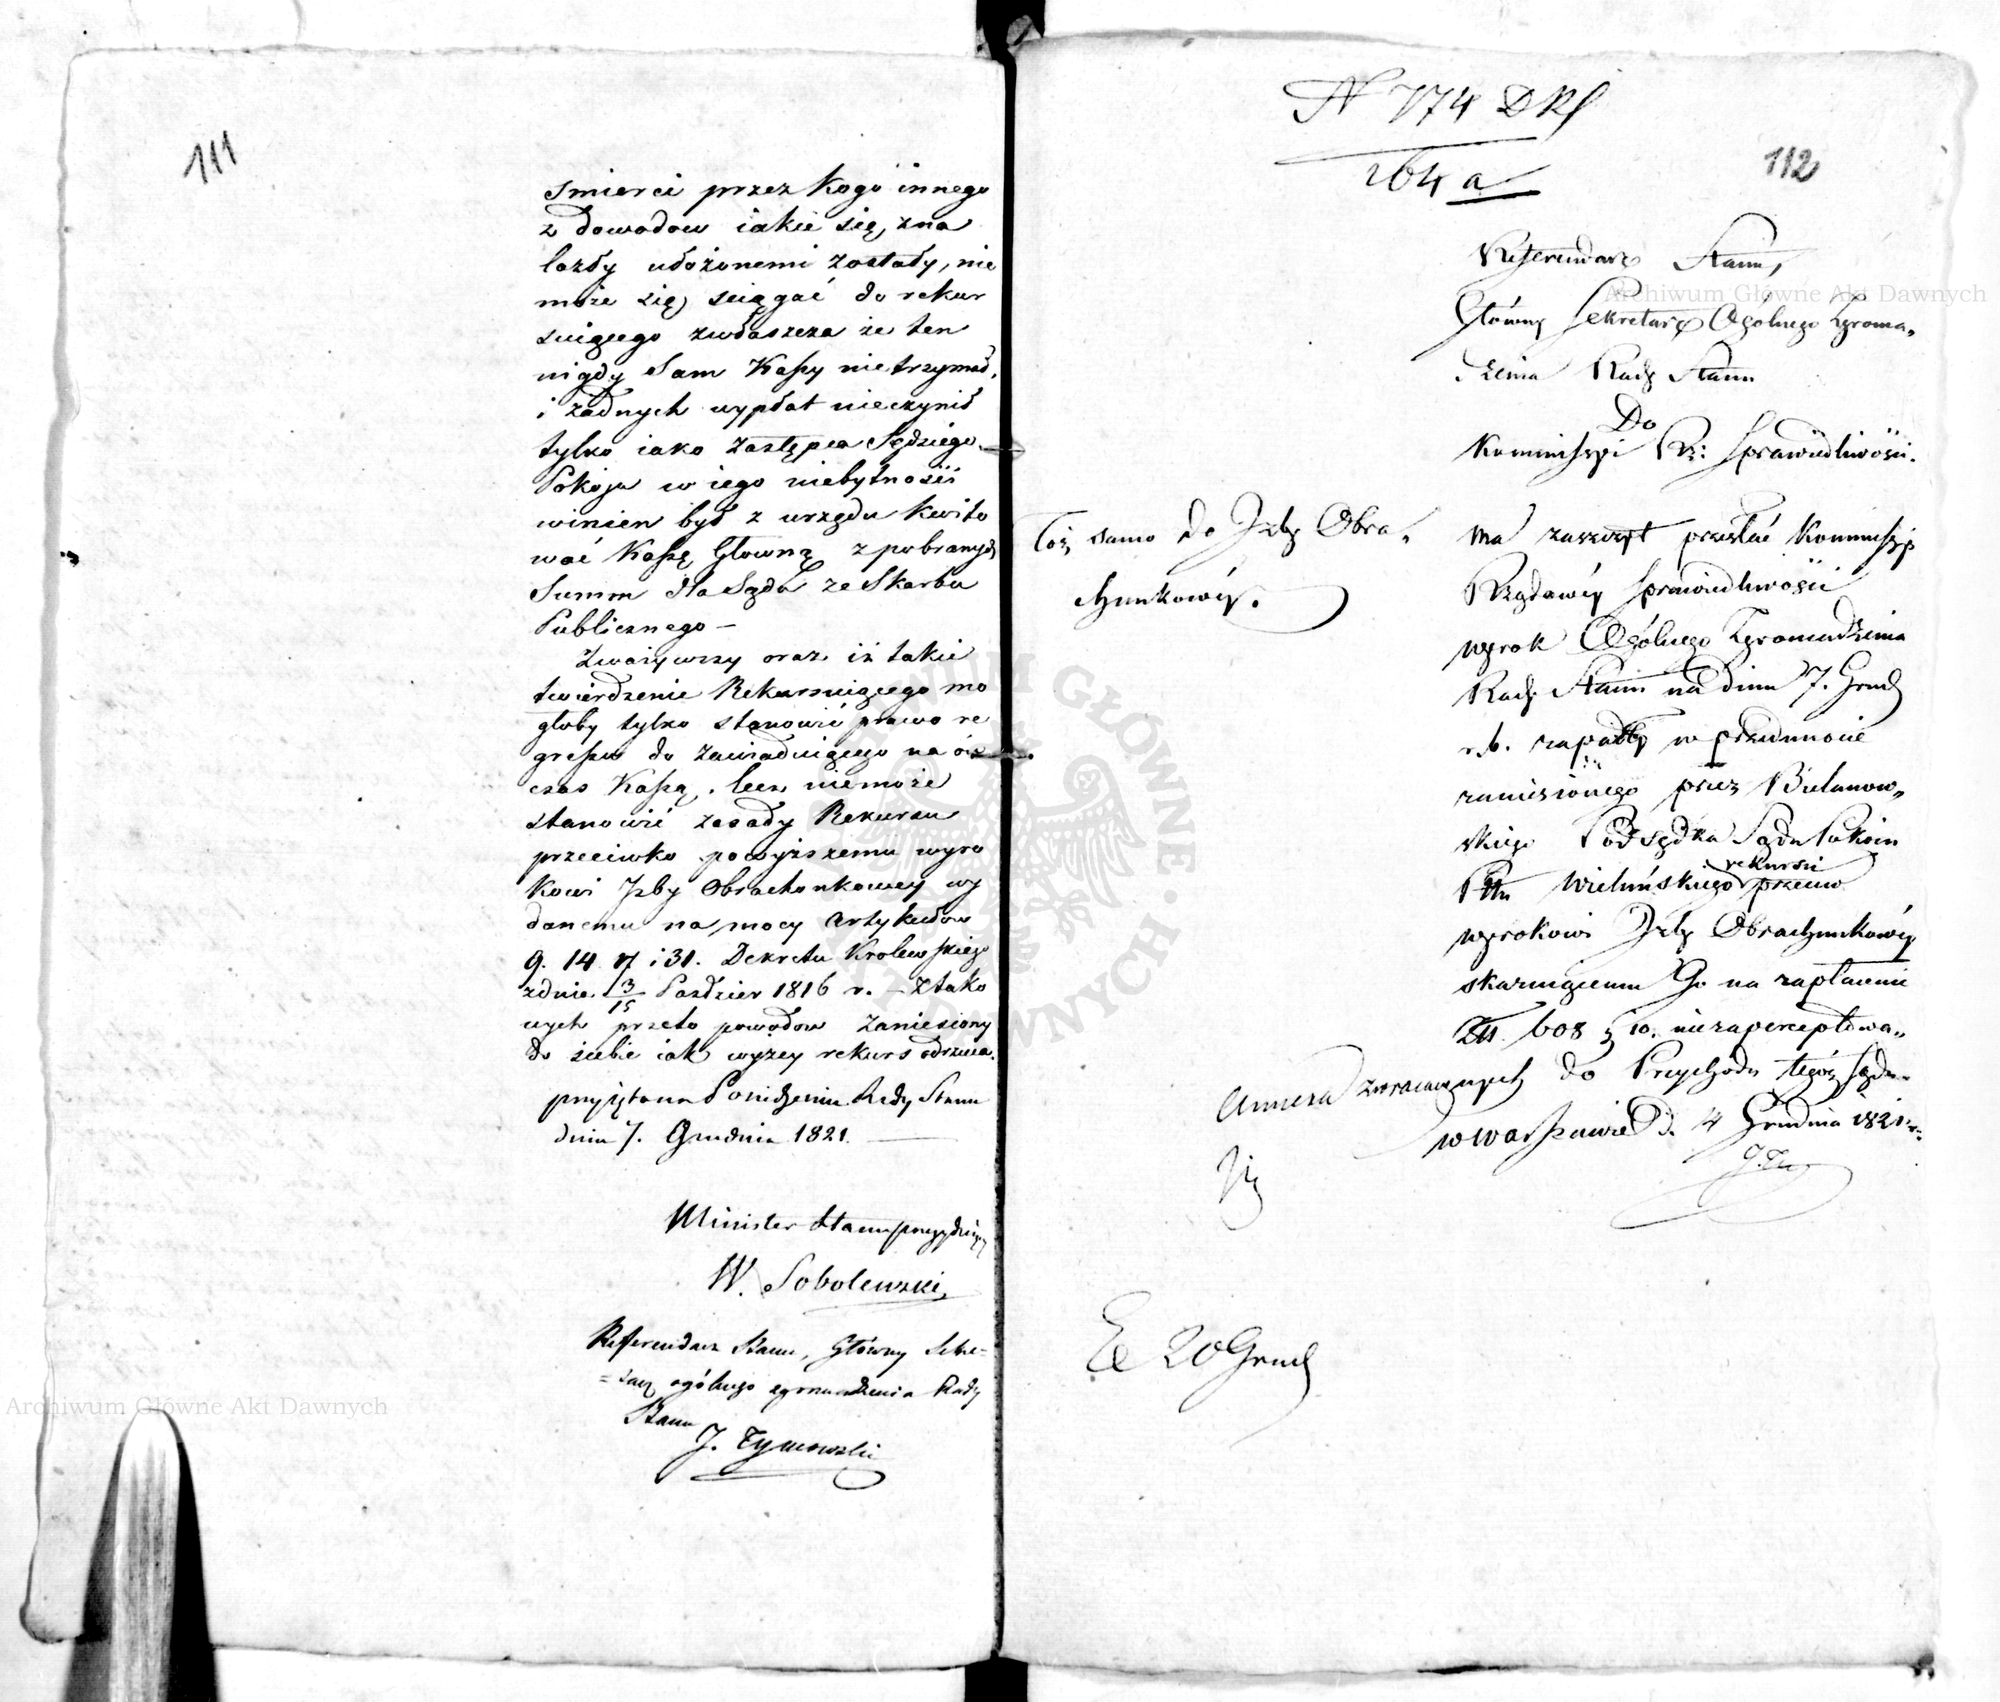 111
smierci przez kogo innego
z dowodow iakie się zna
lazły ułożonemi zostały, nie
może się sciągać do rekur
suiącego zwłaszcza że ten
nigdy sam Kassy nie trzymał,
i żadnych wypłat nieczynił
tylko iako zastępca Sędziego
Pokoju w iego niebytności
winien był z urzędu kwito
wać Kassę Głowną z pobranych
Summ dla Sądu ze Skarbu
Publicznego –
Zważywszy oraz iż takie
twierdzenie Rekursuiącego mo
głoby tylko stanowić prawo re
gressu do zawiaduiącego na ów
czas Kassą, lecz niemoże
stanowić zasady Rekursu
przeciwko powyższemu wyro
kowi Izby Obrachonkowey wy
danemu na mocy artykułow
9. 14 i 31. Dekretu Krolewskiego
z dnia 3/15 Paździer 1816 r. – Z tako
wych przeto powodow zaniesiony
do siebie iak wyżey rekurs odrzuca.
przyięto na Posiedzeniu Rady Stanu
dnia 7. Grudnia 1821.
Minister Stanu prezyduiący
W. Sobolewski
Referendarz Stanu, Główny Sekre=
=tarz ogólnego zgromadzenia Rady
Stanu
J. Tymowski
N 774 DRS
264 a
112
Referendarz Stanu,
Główny Sekretarz Ogólnego Zgroma„
dzenia Rady Stanu
Do
Kommissyi Rz: Sprawiedliwości.
Toż samo do Izby Obra„
chunkowéy.
Ma zaszczyt przesłać Kommissyi
Rządowéy Sprawiedliwości
wyrok Ogólnego Zgromadzenia
Rady Stanu na dniu 7. Grud
r. b. zapadły w przedmiocie
zaniesionego przez Bielanow„
skiego Podsędka Sądu Pokoiu
Pttu Wieluńskiego rekursu przeciw
wyrokowi Izby Obrachunkowéy
skazuiącemu Go na zapłacenie
Zł. 608 g 10. niezapercepto­wa„
nych do Przychodu tegoż Sądu.
w Warszawie d. Grudnia 1821 r.
J. Ty
Ex 20 Grud